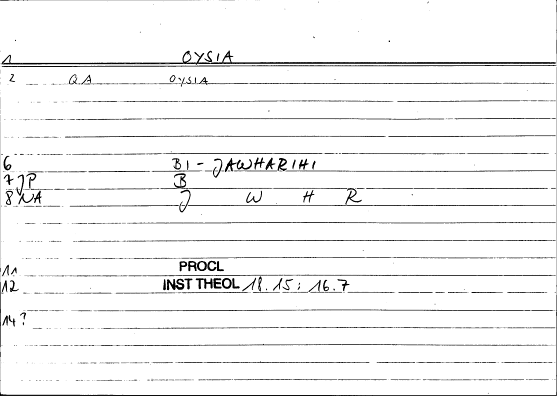 1 OYSIA
2 QA OYSIA
6 BI - JAWHARIHI
7 JP B
8 NA J W H R
11 PROCL
12 INST THEOL 18.15; 16.7
14?